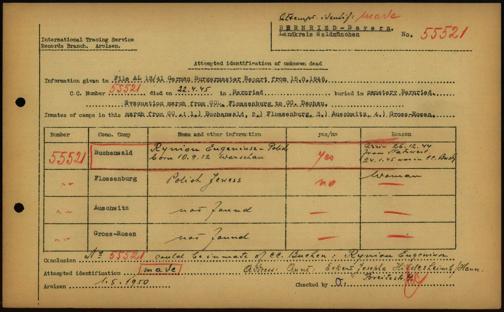 Attempt. identif. made
BERNRIED-Bayern.
Landkreis Waldmünchen
No. 55521
International Tracing Service
Records Branch. Arolsen.
Attempted identification of unknown dead
Information given in File AL 13/41 German Burgermaster Report from 15.6.1946.
C.C. Number 55521 died on 22.4.45 in Bernried buried in cemetery Bernried.
Evacuation march from CC. Flossenburg to CC. Dachau.
Inmates of camps in this march from CC at 1.) Buchenwald, 2.) Flossenburg, 3.) Auschwitz, 4.) Gross-Rosen.
Number Conc. Camp Name and other information yes/no Reason
55521 Buchenwald Rymian Eugeniusz - Polish born 10.9.12 Warschau yes 26.12.44 from 24.1.45 CC. Buch.
-"- Flossenburg Polish Jewess no Woman
-"- Auschwitz not found — —
-"- Gross-Rosen not found — —
Conclusion No 55521 could be inmate of CC. Buchen: Rymian Eugeniusz
Attempted identification made Hildesheim/Hann.
Arolsen 1.5.1950 Checked by